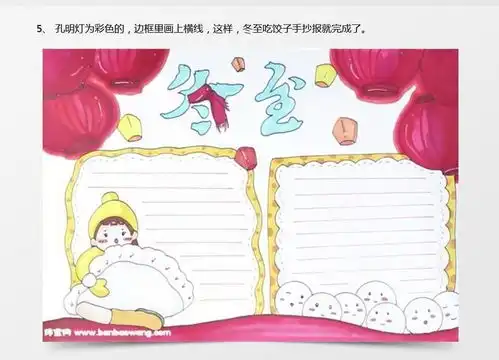 5、 孔明灯为彩色的，边框里画上横线，这样，冬至吃饺子手抄报就完成了。
冬至
www.banbaowang.com